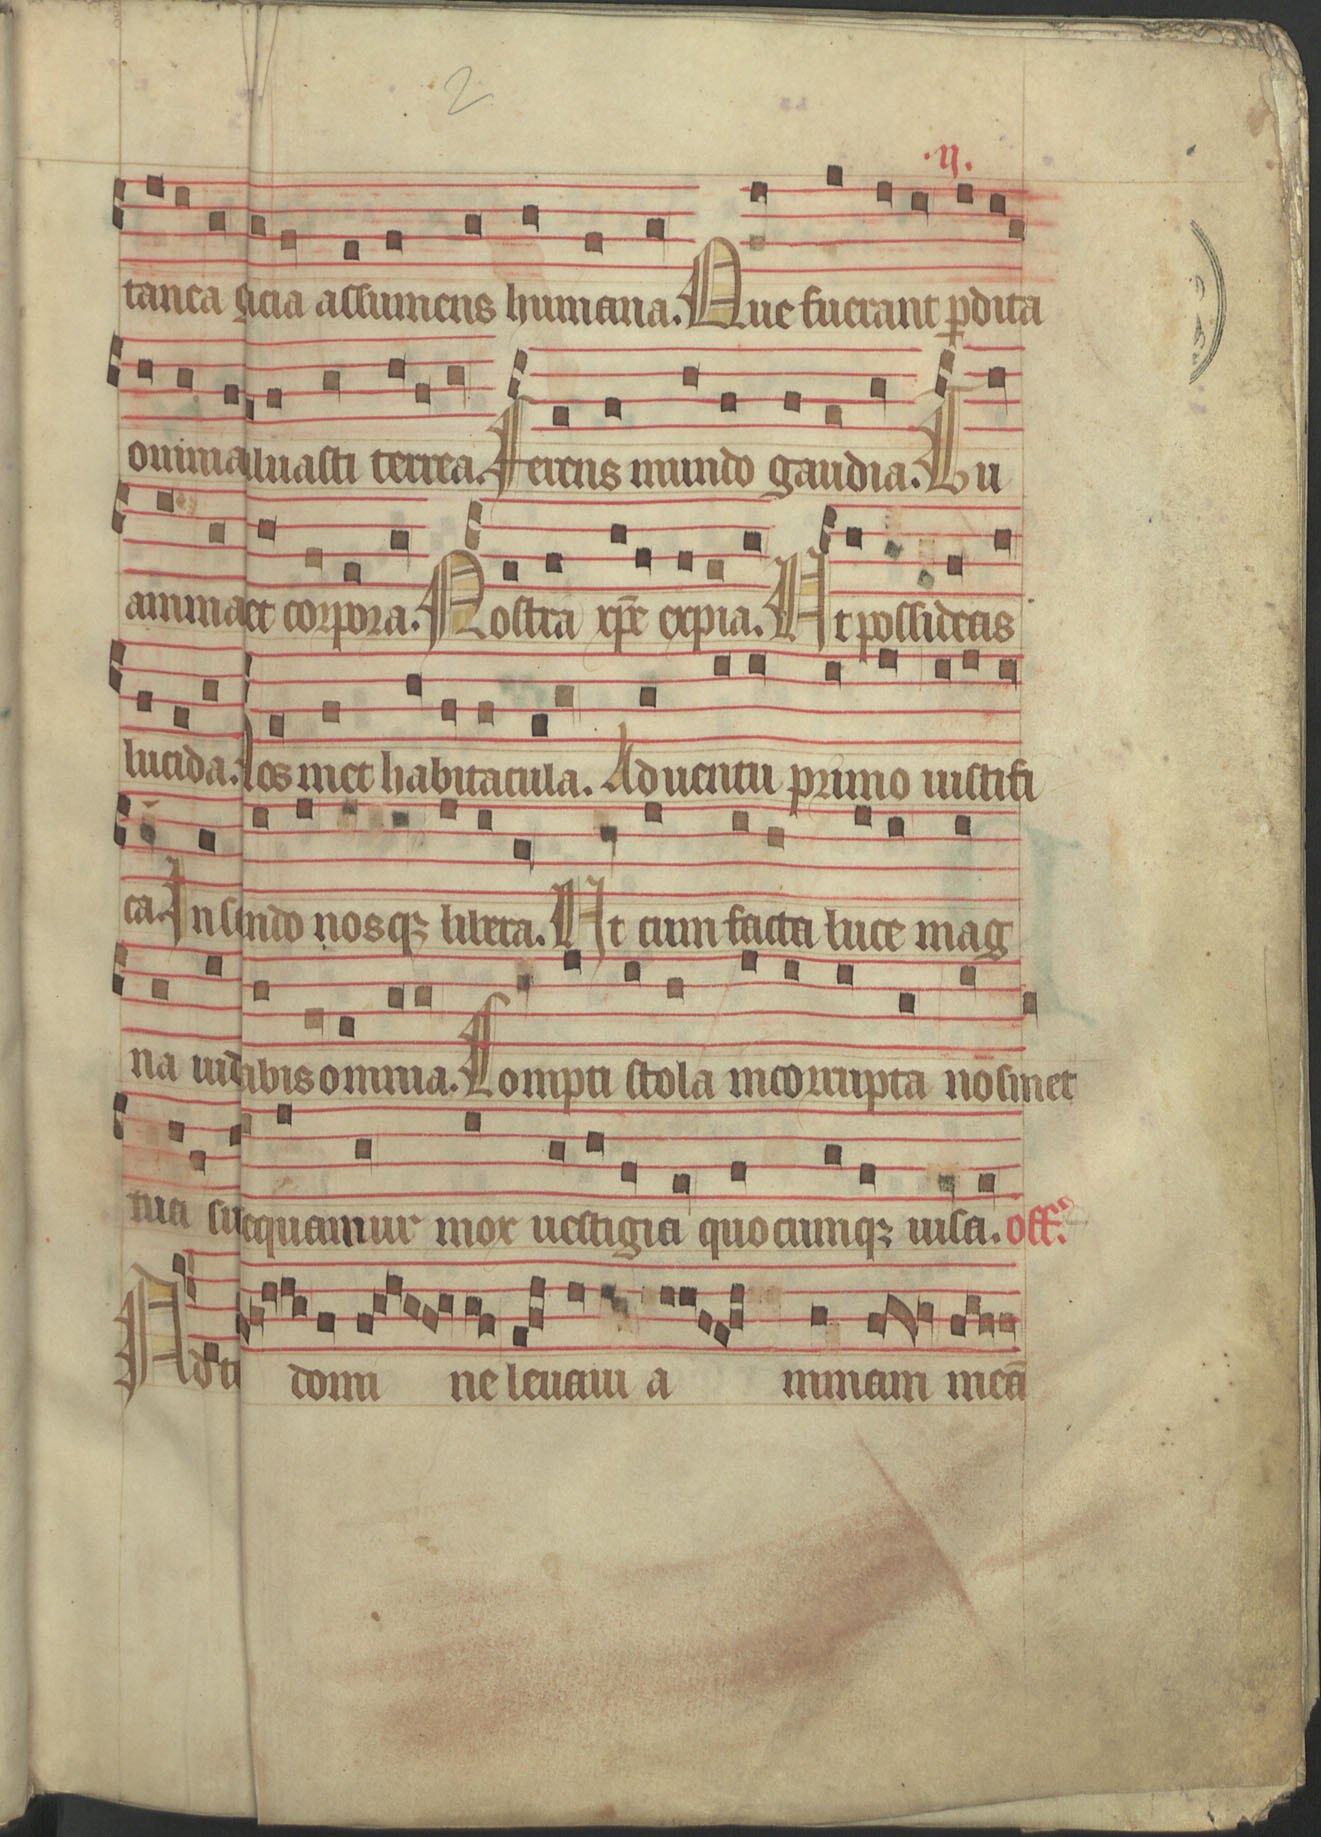 2
.ij.
tanea gicia assumens humana. Que fuerant pdita
omnia luasti terrea. Ferens mundo gaudia. Tu
animaet corpora. Nostra xpe expia. Ut possideas
lucida. Nos met habitacula. Aduentu primo iustifi
ca. In sendo nosq; libera. Ut cum facta luce mag
na iudibis omnia. Compti stola incorrupta nosmet
tua suequamur mox uestigia quocumq; uisa. off.
Ad te domi ne leuaui a nimam meā